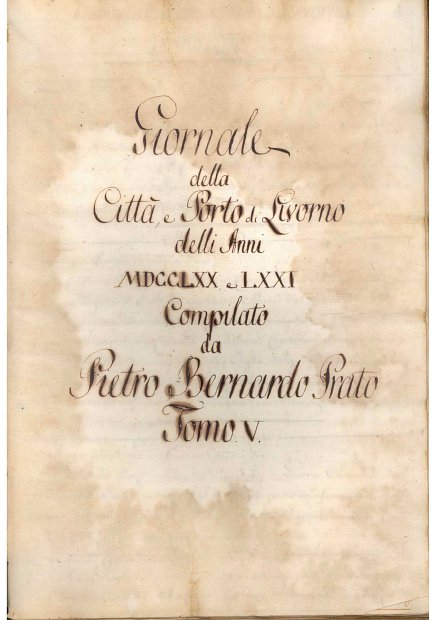 Giornale
della
Città, e Porto di Livorno
delli Anni
MDCCLXX e LXXI
Compilato
da
Pietro Bernardo Prato
Tomo V.